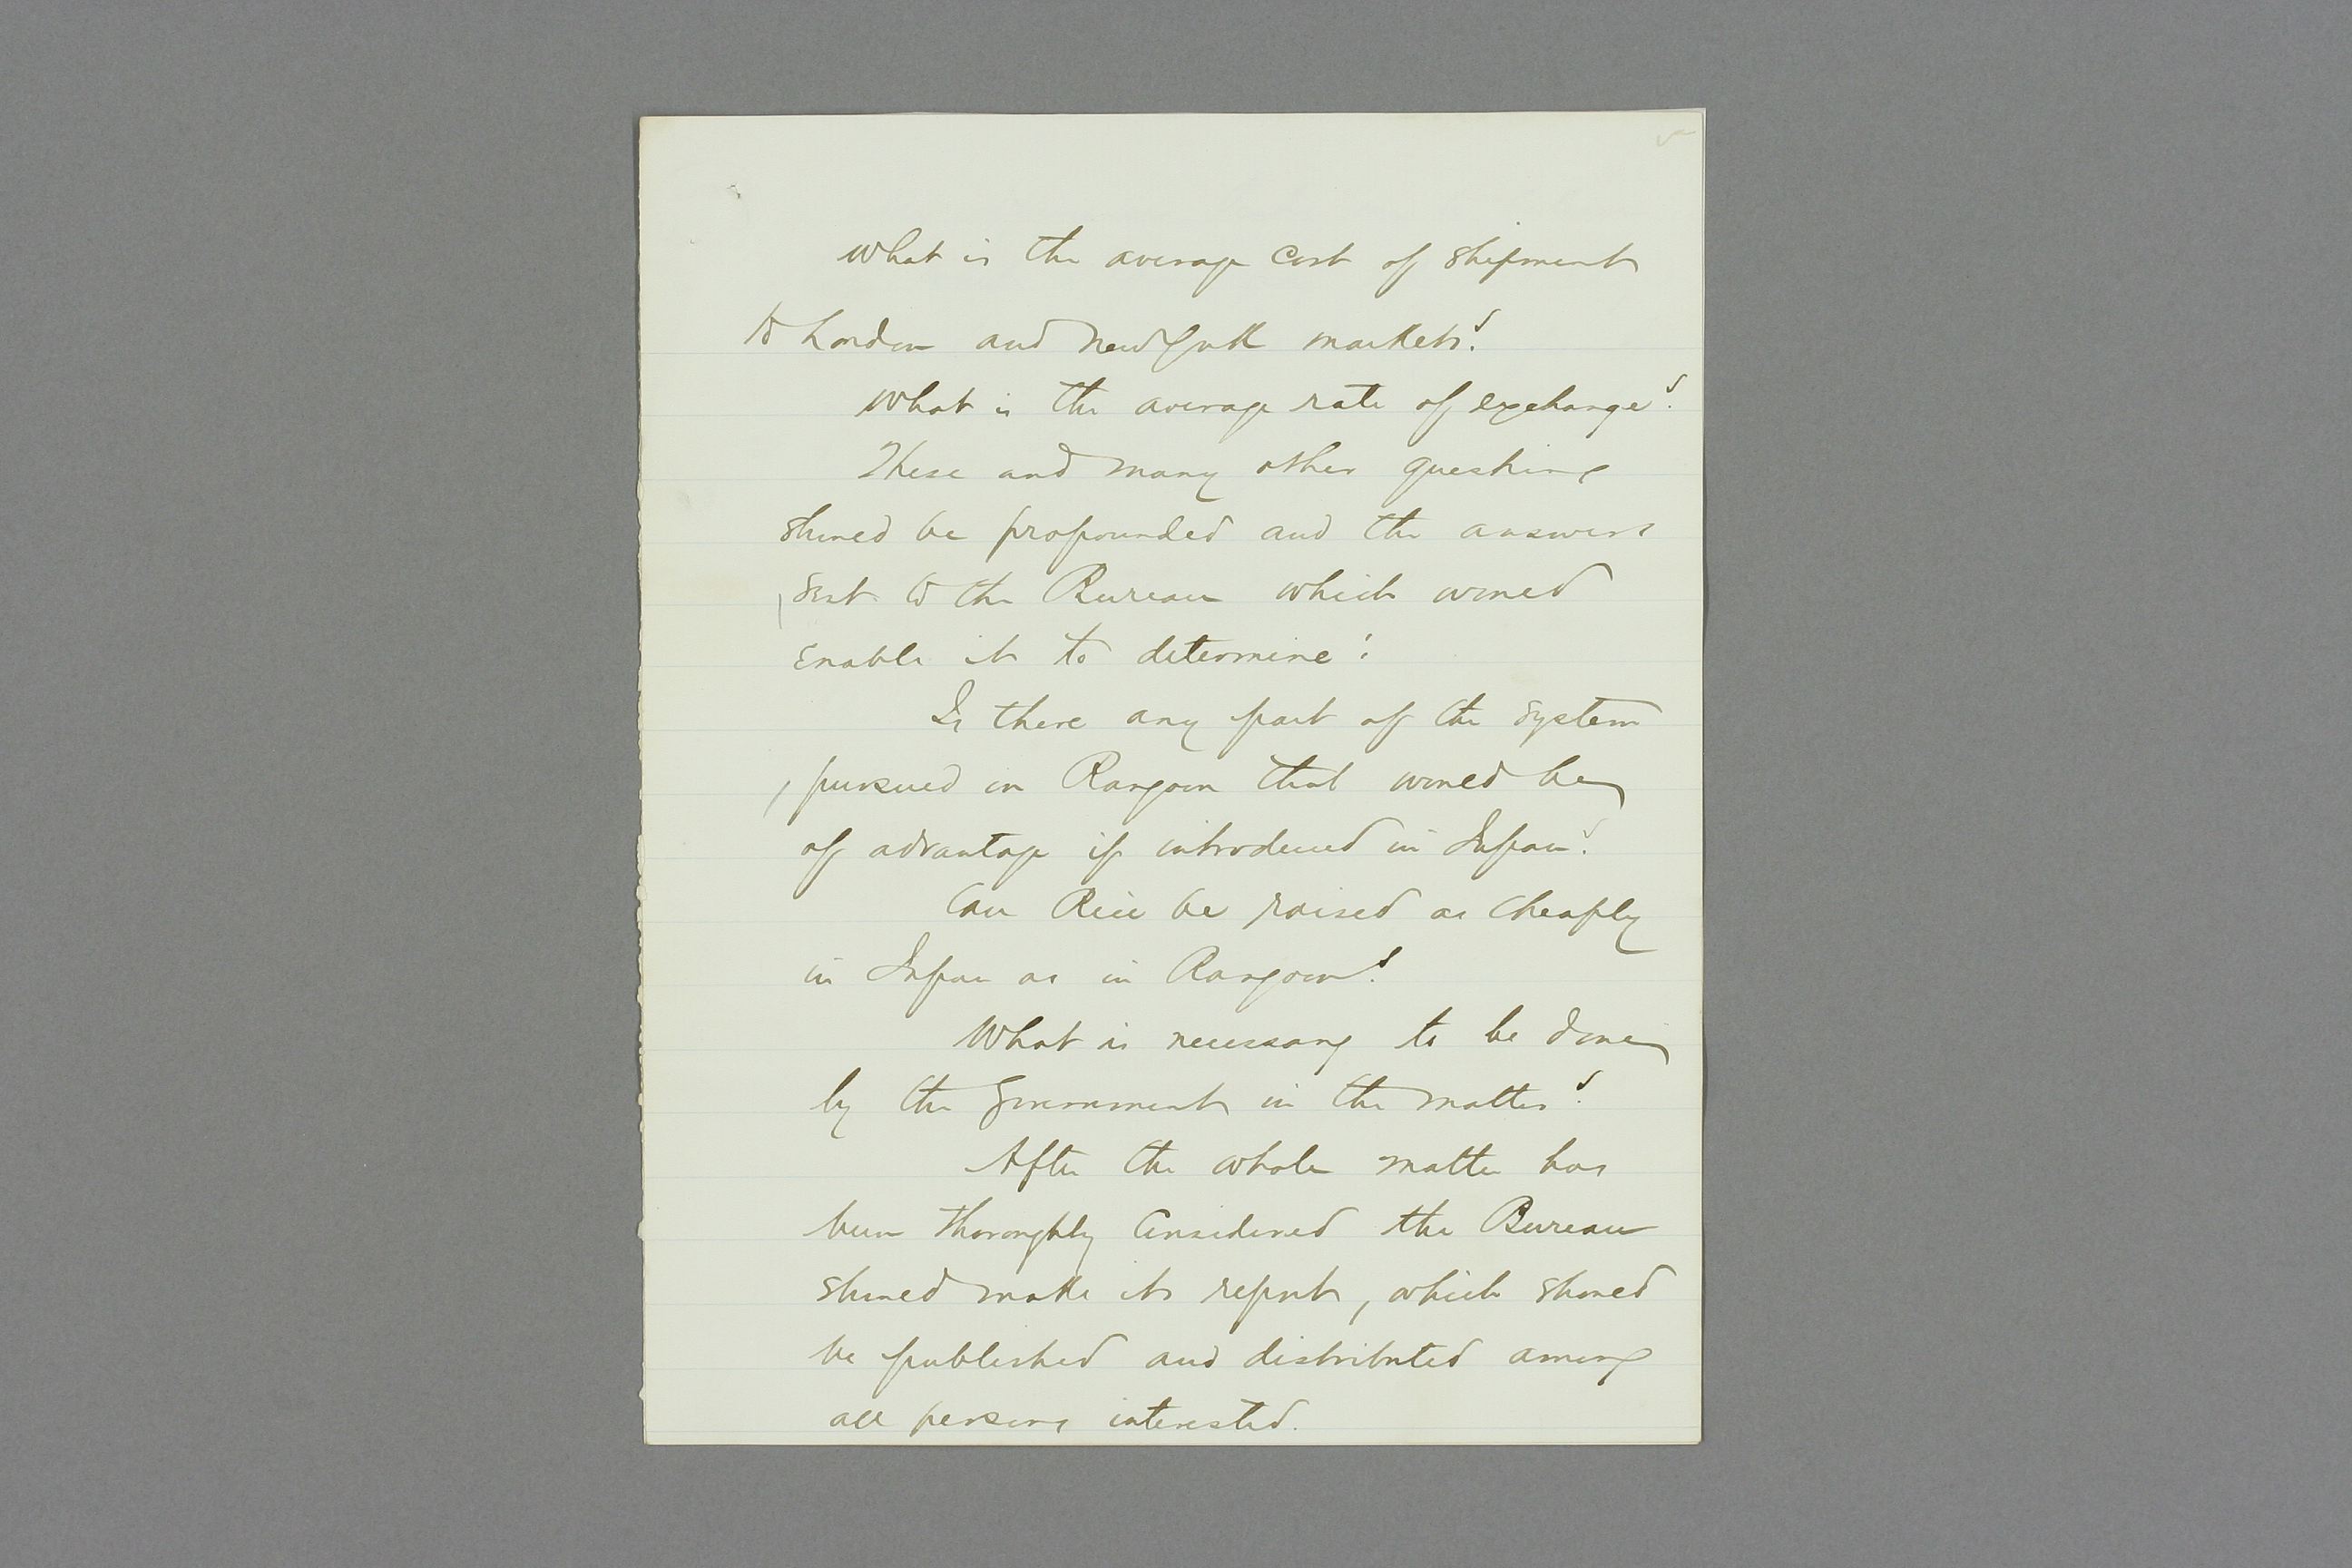 What is the average cost of shipment
to London and New York markets?
What is the average rate of exchange?
These and many other questions
should be propounded and the answers
sent to the Bureau which would
enable it to determine:
Is there any part of the system
pursued in Rangoon that would be
of advantage if introduced in Japan?
Can Rice be raised as cheaply
in Japan as in Rangoon?
What is necessary to be done
by the Government in the matter?
After the whole matter has
been thoroughly considered the Bureau
should make its report, which should
be published and distributed among
all persons interested.